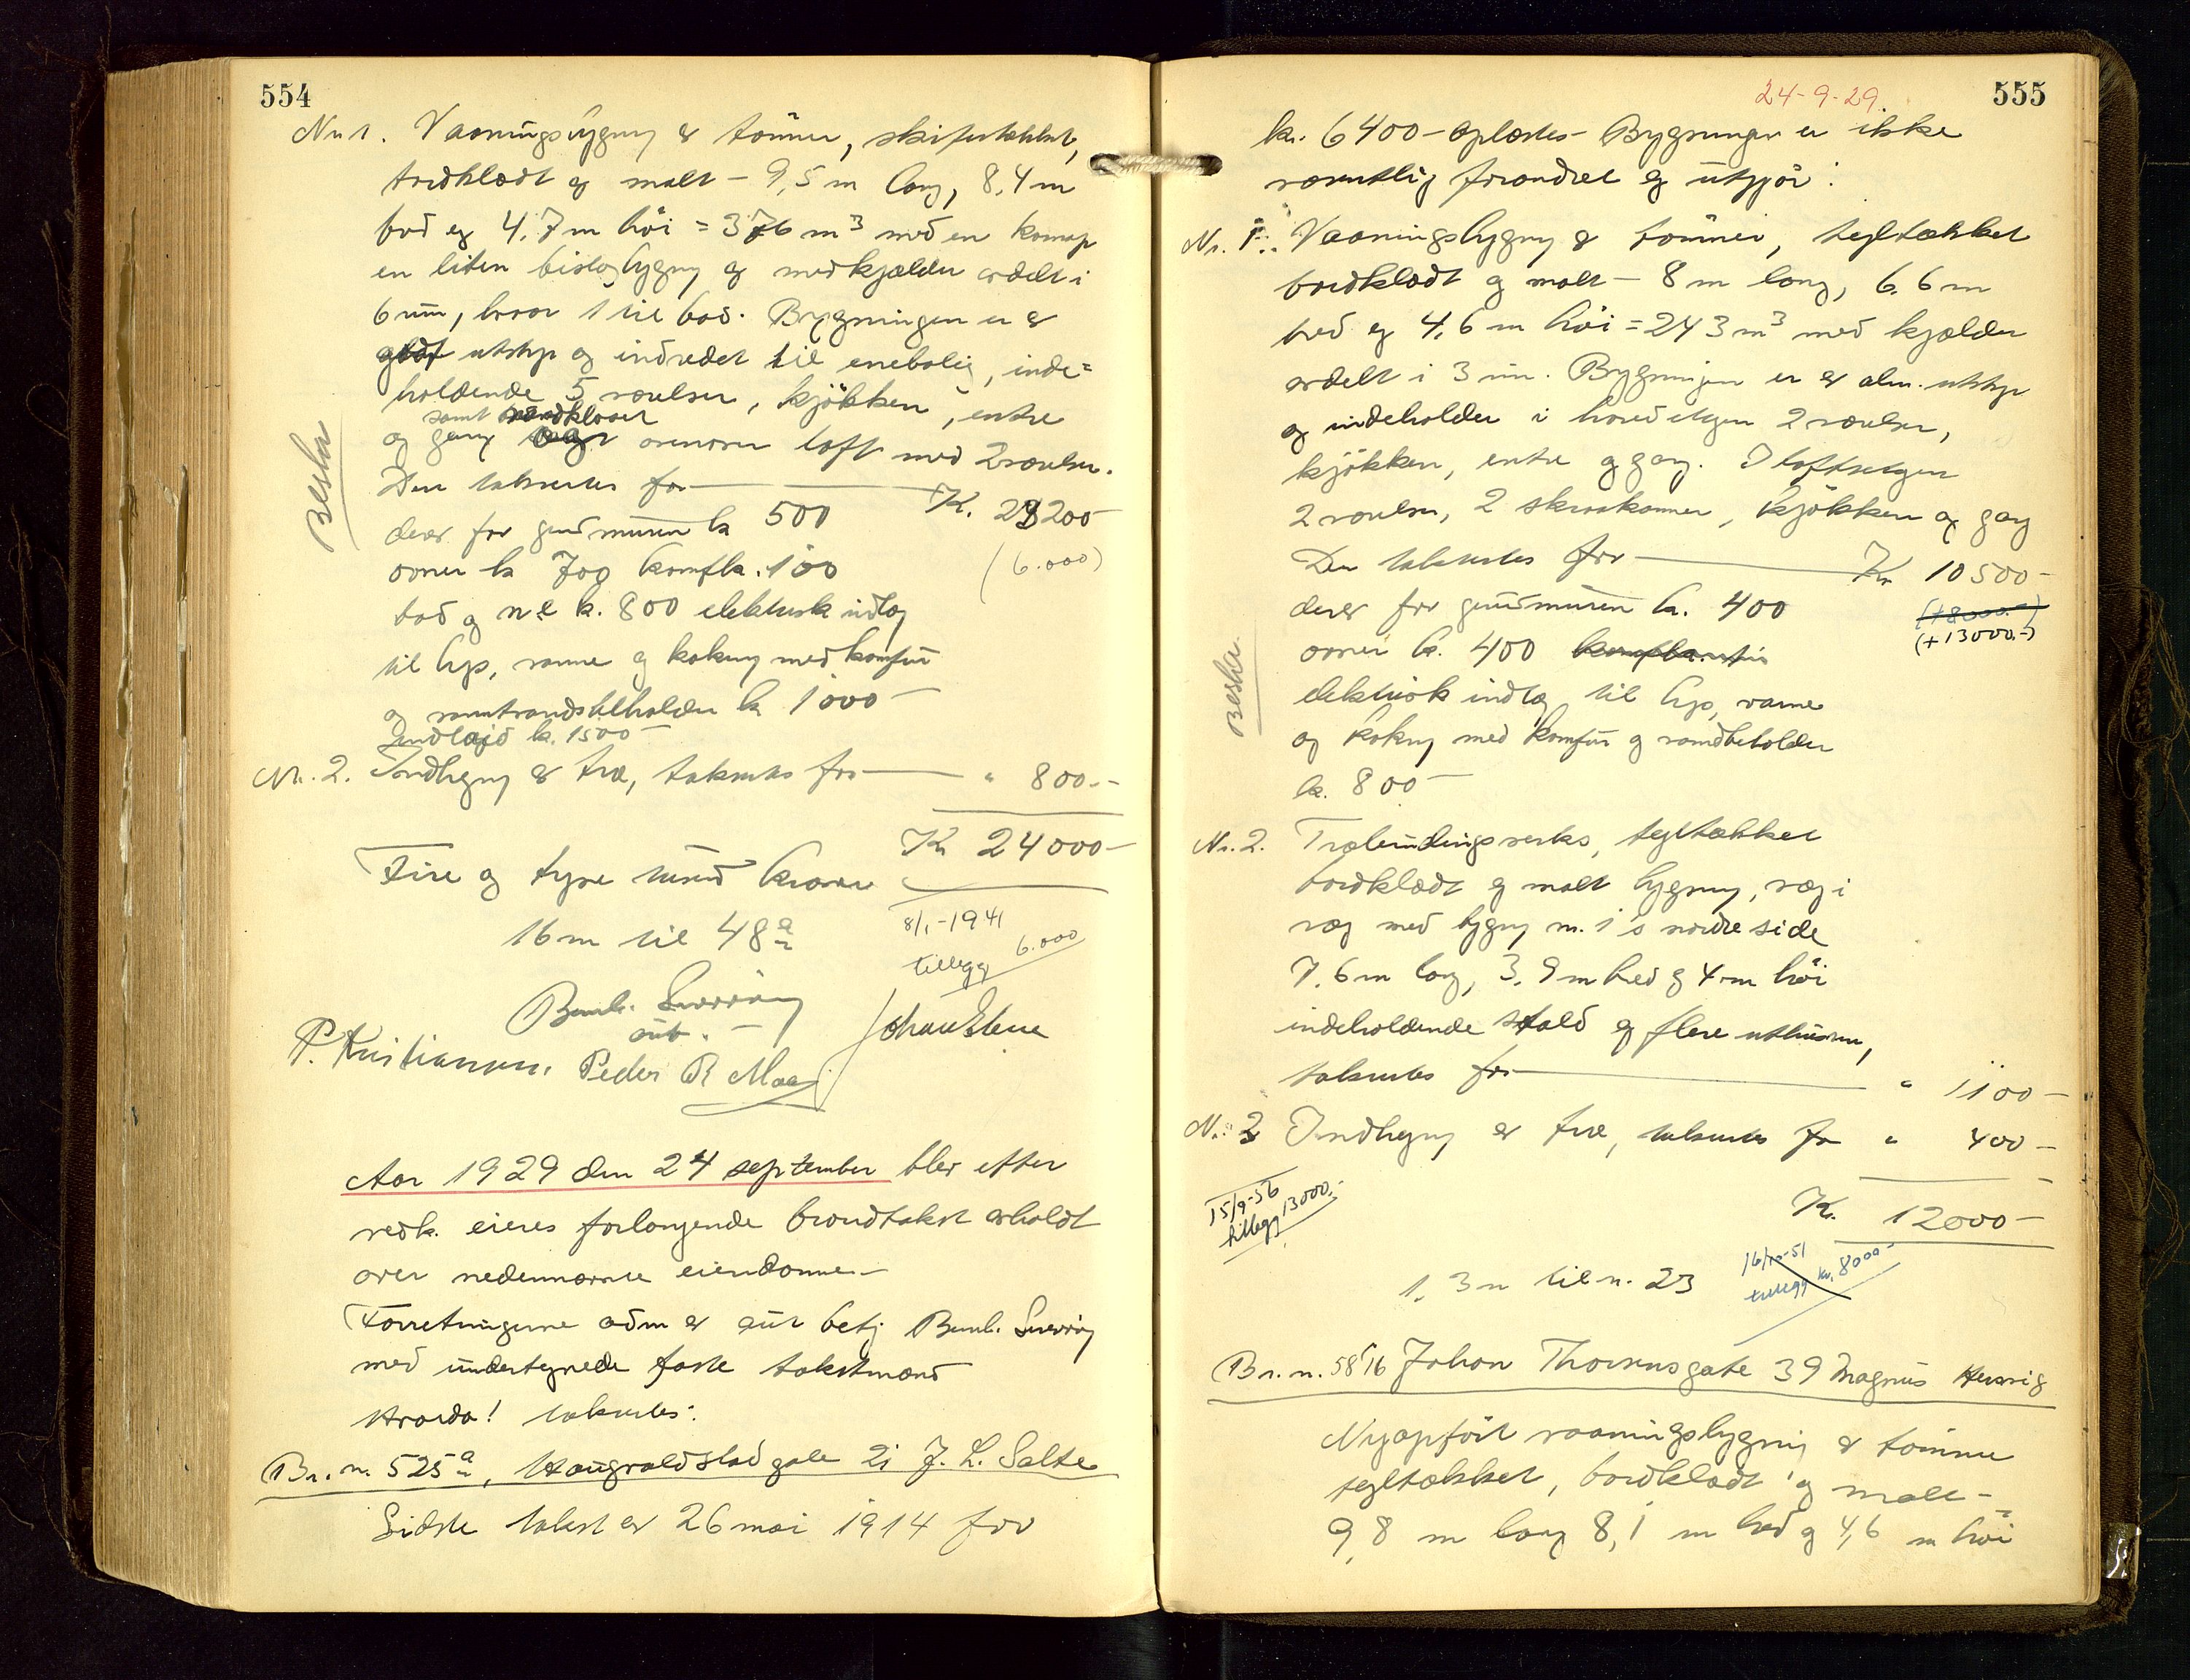 554
Nr 1. Vaaningsbygning av tømmer, skifertækket,
bordklædt og malt - 9,5 m lang, 8,4 m
bred og 4,7 m høi = 376 m³ med en
en liten bislagbygning og med kjælder avdelt i
6 rum, hvorav 1 til bad. Bygningen er av
godt utstyr og indredet til enebolig, inde=
holdende 5 værelser, kjøkken, entre
samt
og gang ovenover loft med 2 værelser.
Beska
Den takseres for — K. 23200-
derav for grundmuren kr 500
ovner kr 700 komfkr. 100 (6.000)
bad og w c kr. 800 elektrisk indlæg
til lys, varme og kokning med komfur
og varmtvandsbeholder kr 1000-
kr. 1500-
Nr. 2. Indhegning av træ, takseres for — " 800.--
Kr 24000-
Fire og tyve tusind kroner
16 m til 48 a
8/1-1941
tillegg 6.000
Bernh. Sverving
aut. -
P. Kristiansen. Peder R Maaj Johan Stene
Aar 1929 den 24 september blev efter
vedk. eieres forlangende brandtakst avholdt
over nedennævnte eiendomme-
Forretningerne adm av aut betj Bernh. Sverving
med undertegnede faste takstmænd
Hvorda! takseres:
Br. nr. 525 a, Haugvaldstad gate 21 J. L. Salte
Sidste takst av 26 mai 1914 for
24-9-29.
555
kr. 6400- oplæstes- Bygningen er ikke
væsentlig forandret og utgjør:
Nr. 1. Vaaningsbygning av tømmer, tegltækket
bordklædt og malt - 8 m lang, 6.6 m
bred og 4,6 m høi = 243 m³ med kjælder
avdelt i 3 rum. Bygningen er av alm. utstyr
og indeholder i hovedetagen 2 værelser,
kjøkken, entre og gang. I loftsetagen
2 værelser, 2 skraakammer, kjøkken og gang
Den takseres for — Kr 10500-
derav for grundmuren kr. 400 (+8000.-)
ovner kr. 400 (+13000,-)
Beska.
elektrisk indlæg til lys, varme
og kokning med komfur og vandbeholder
kr. 800-
Nr. 2. Træbindingsverks, tegltækket
bordklædt og malt bygning, væg i
væg med bygning nr. 1's nordre side
7,6 m lang, 3,9 m bred og 4 m høi
indeholdende stald og flere uthusrum,
takseres for — " 1100-
Nr. 3 Indhegning av træ, takseres for " 400-
15/9-56
tillegg 13000.-
Kr. 12000-
1. 3 m til nr. 23
16/10-51
tillegg kr. 8000-
Br. nr. 58/16 Johan Thorsens gate 39 Magnus
Nyopført vaaningsbygning av tømmer
tegltækket, bordklædt og malt -
9,8 m lang 8,1 m bred og 4,6 m høi